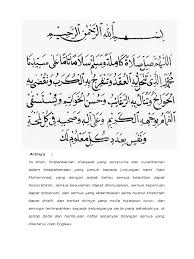 بِسْمِ اللهِ الرَّحْمٰنِ الرَّحِيْمِ
اَللّٰهُمَّ صَلِّ صَلَاةً كَامِلَةً وَسَلِّمْ سَلَامًا تَامًّا عَلٰى سَيِّدِنَا
مُحَمَّدٍ الَّذِيْ تَنْحَلُّ بِهِ الْعُقَدُ وَتَنْفَرِجُ بِهِ الْكُرَبُ وَتُقْضٰى بِهِ
الْحَوَائِجُ وَتُنَالُ بِهِ الرَّغَائِبُ وَحُسْنُ الْخَوَاتِمِ وَيُسْتَسْقَى
الْغَمَامُ بِوَجْهِهِ الْكَرِيْمِ وَعَلٰى اٰلِهِ وَصَحْبِهِ فِيْ كُلِّ لَمْحَةٍ
وَنَفَسٍ بِعَدَدِ كُلِّ مَعْلُوْمٍ لَكَ
Artinya :
Ya Allah, limpahkanlah shalawat yang sempurna dan curahkanlah
salam kesejahteraan yang penuh kepada junjungan kami Nabi
Muhammad, yang dengan sebab beliau semua kesulitan dapat
terpecahkan, semua kesusahan dapat dilenyapkan, semua keperluan
dapat terpenuhi, dan semua yang didambakan serta husnul khatimah
dapat diraih, dan berkat dirinya yang mulia hujanpun turun, dan
semoga terlimpahkan kepada keluarganya serta para sahabatnya, di
setiap detik dan hembusan nafas sebanyak bilangan semua yang
diketahui oleh Engkau.